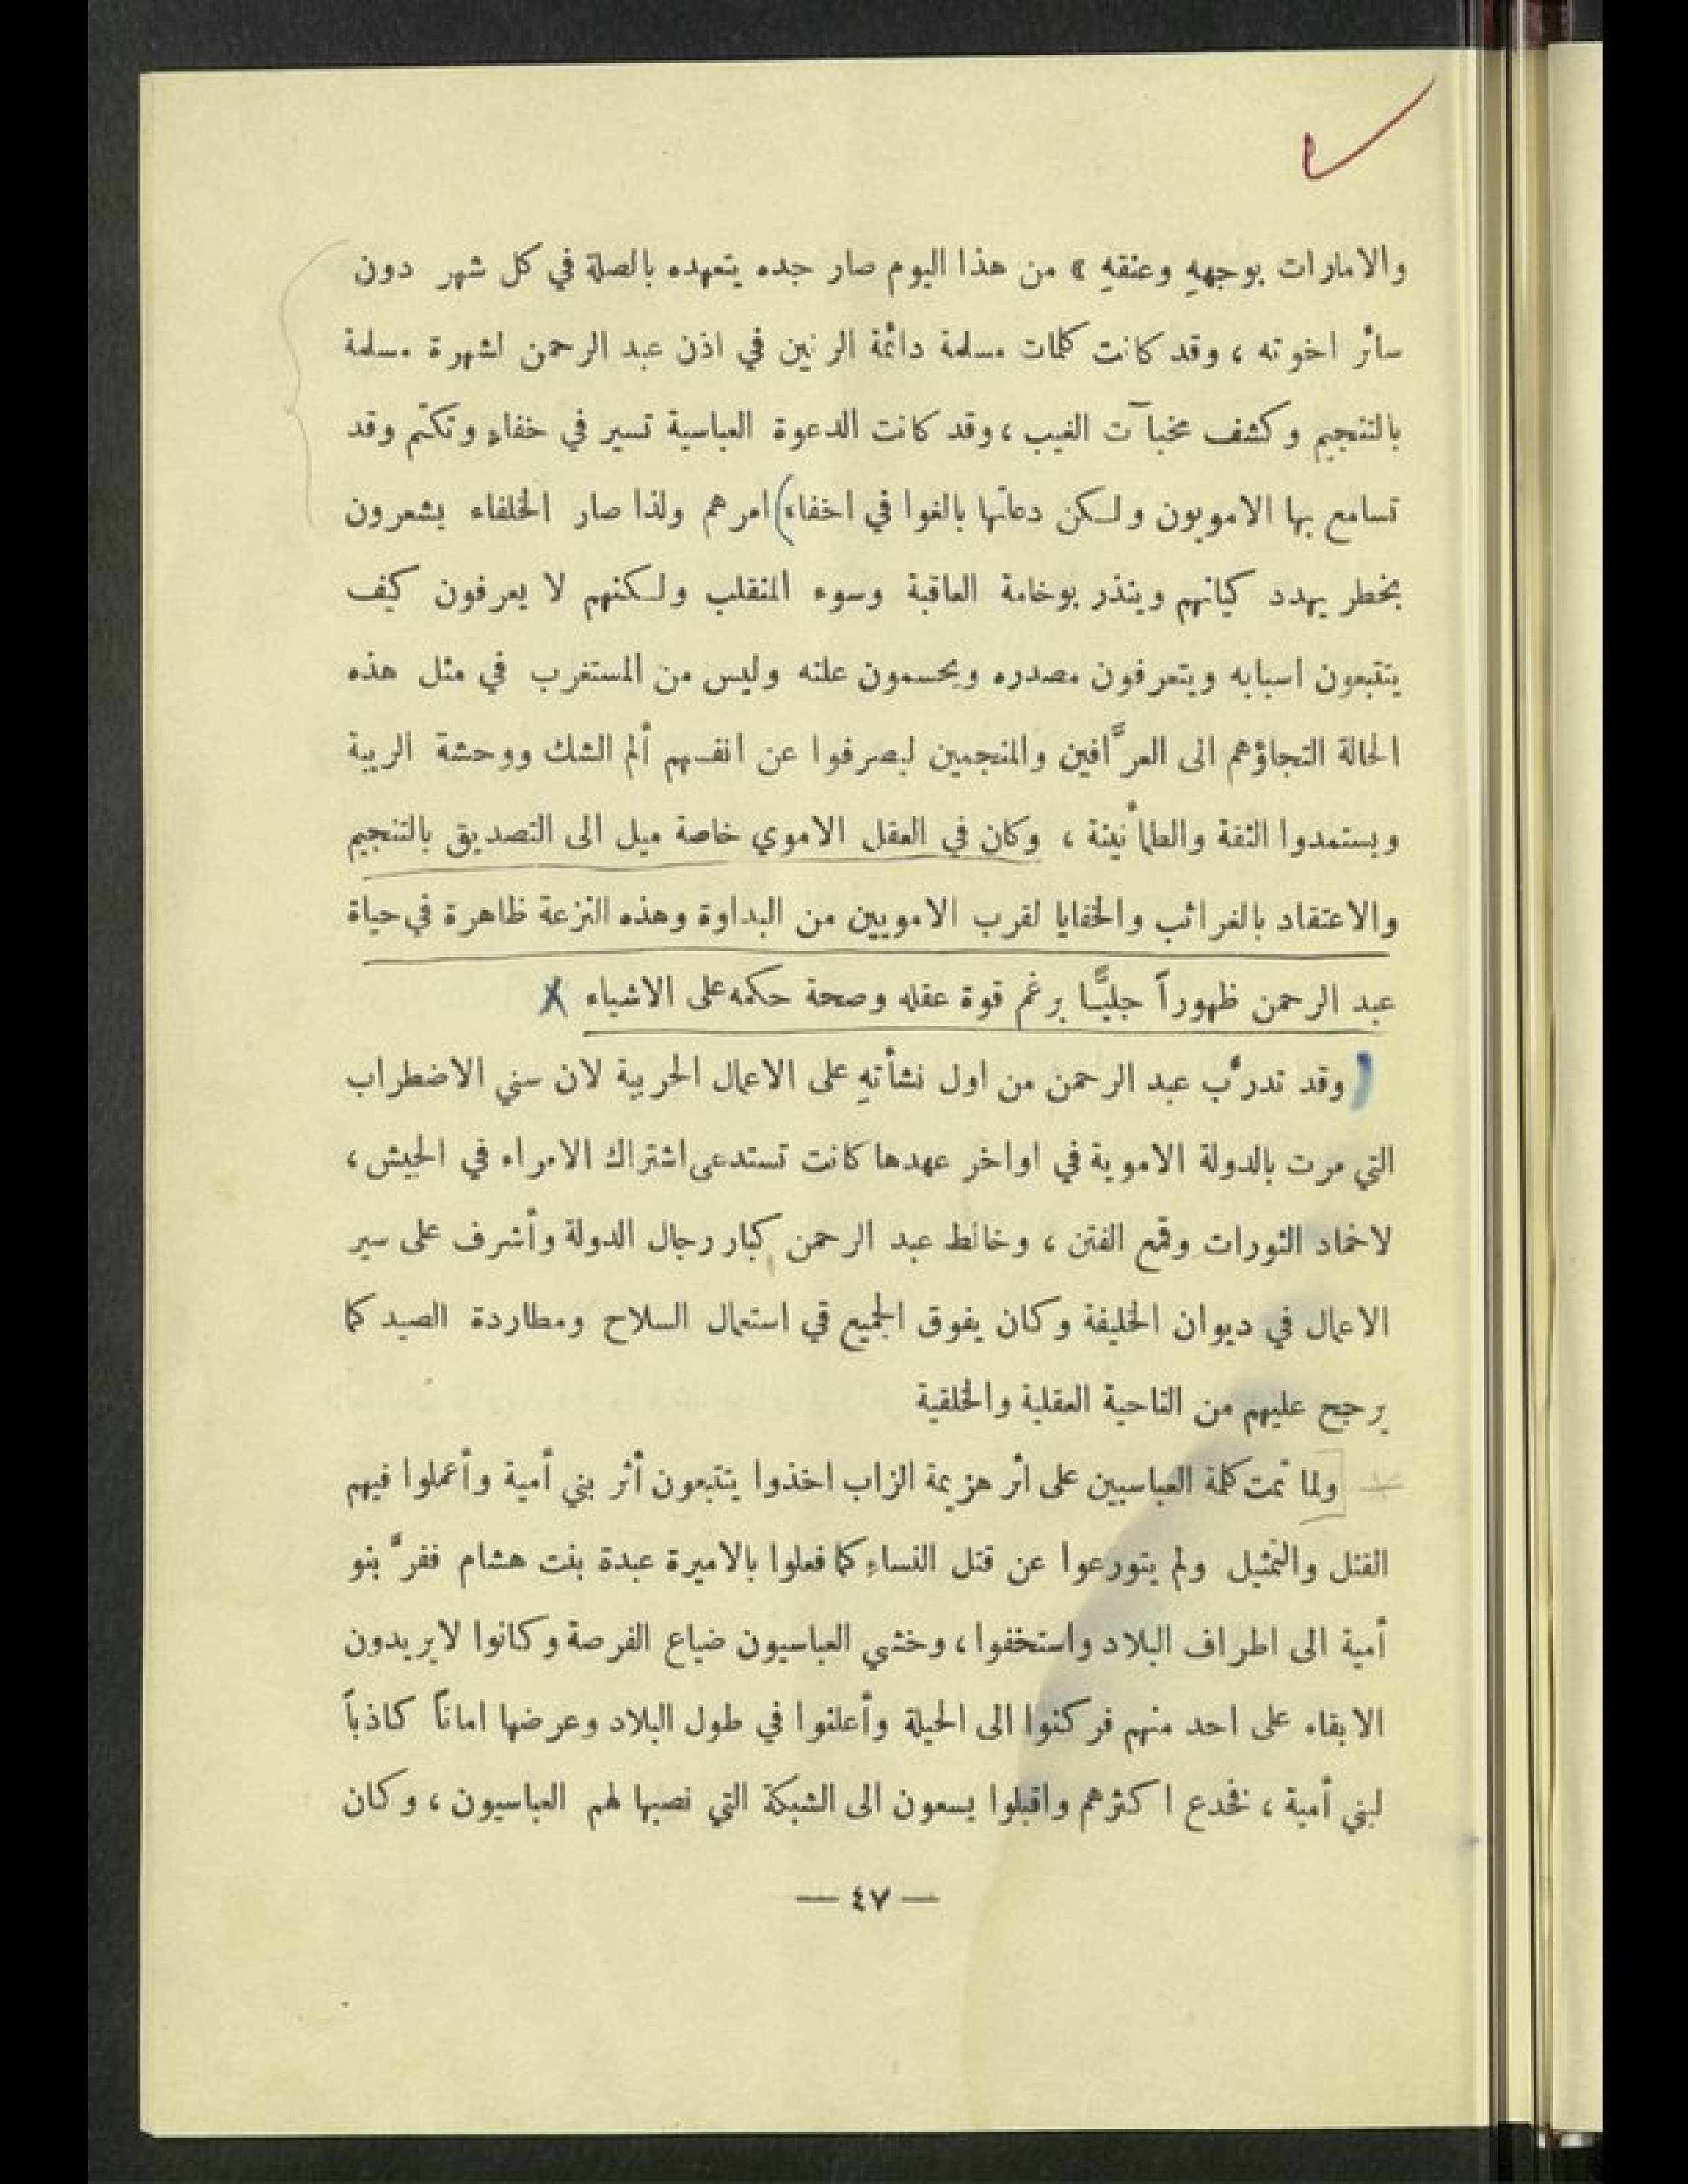 والامارات بوجههِ وعنقهِ » من هذا اليوم صار جده يتعهده بالصلة في كل شهر دون
سائر اخوته ، وقد كانت كلمات مسلمة دائمة الرنين في اذن عبد الرحمن لشهرة مسلمة
بالتنجيم وكشف مخبآت الغيب ، وقد كانت الدعوة العباسية تسير في خفاءٍ وتكتّم وقد
تسامع بها الامويون ولكن دعاتها بالغوا في اخفاء) امرهم ولذا صار الخلفاء يشعرون
بخطر يهدد كيانهم وينذر بوخامة العاقبة وسوء المنقلب ولكنهم لا يعرفون كيف
يتتبعون اسبابه ويتعرفون مصدره ويحسمون علته وليس من المستغرب في مثل هذه
الحالة التجاؤهم الى العرَّافين والمنجمين ليصرفوا عن انفسهم ألم الشك ووحشة الريبة
ويستمدوا الثقة والطمأنينة ، وكان في العقل الاموي خاصة ميل الى التصديق بالتنجيم
والاعتقاد بالغرائب والخفايا لقرب الامويين من البداوة وهذه النزعة ظاهرة في حياة
عبد الرحمن ظهوراً جليًّا برغم قوة عقله وصحة حكمه على الاشياء X
( وقد تدرَّب عبد الرحمن من اول نشأتهِ على الاعمال الحربية لان سني الاضطراب
التي مرت بالدولة الاموية في اواخر عهدها كانت تستدعى اشتراك الامراء في الجيش ،
لاخماد الثورات وقمع الفتن ، وخالط عبد الرحمن كبار رجال الدولة وأشرف على سير
الاعمال في ديوان الخليفة وكان يفوق الجميع في استعمال السلاح ومطاردة الصيد كما
يرجح عليهم من الناحية العقلية والخلقية
ولما تمت كلمة العباسيين على اثر هزيمة الزاب اخذوا يتتبعون أثر بني أمية وأعملوا فيهم
القتل والتمثيل ولم يتورعوا عن قتل النساءِ كما فعلوا بالاميرة عبدة بنت هشام ففرَّ بنو
أمية الى اطراف البلاد واستخفوا ، وخشي العباسيون ضياع الفرصة وكانوا لايريدون
الابقاء على احد منهم فركنوا الى الحيلة وأعلنوا في طول البلاد وعرضها اماناً كاذباً
لبني أمية ، فخدع اكثرهم واقبلوا يسعون الى الشبكة التي نصبها لهم العباسيون ، وكان
— ٤٧ —